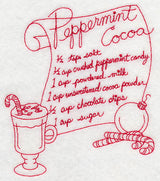 Peppermint
Cocoa
½ tsp salt
½ cup crushed peppermint candy
1 cup powdered milk
1 cup unsweetened cocoa powder
½ cup chocolate chips
1 cup sugar